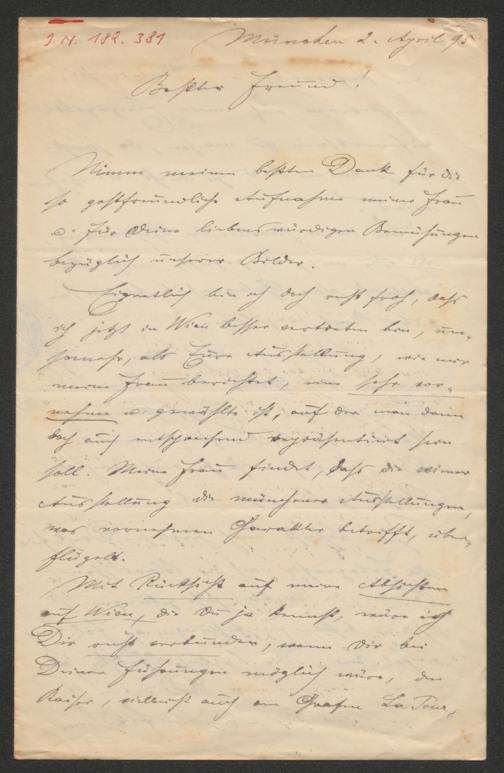 J.N. 182.381
München 2. April 95
Bester Freund!
Nimm meinen besten Dank für die
so gastfreundliche Aufnahme meiner Frau
u. für Deine liebenswürdigen Bemühungen
bezüglich unserer Bilder.
Eigentlich bin ich doch recht froh, daß
ich jetzt in Wien besser vertreten bin, um-
somehr, als Eure Ausstellung, wie mir
meine Frau berichtet, eine sehr vor-
nehme u. gewählte ist, auf der man dann
doch auch entsprechend repräsentirt sein
soll. Meine Frau findet, daß die wiener
Ausstellung die münchener Ausstellungen,
was vornehmen Charakter betrifft, über-
flügelt.
Mit Rücksicht auf meine Absichten
auf Wien, die Du ja kennst, wäre ich
Dir recht verbunden, wenn Dir bei
Deinen Führungen möglich wäre, den
Kaiser, vielleicht auch den Grafen La Tour,